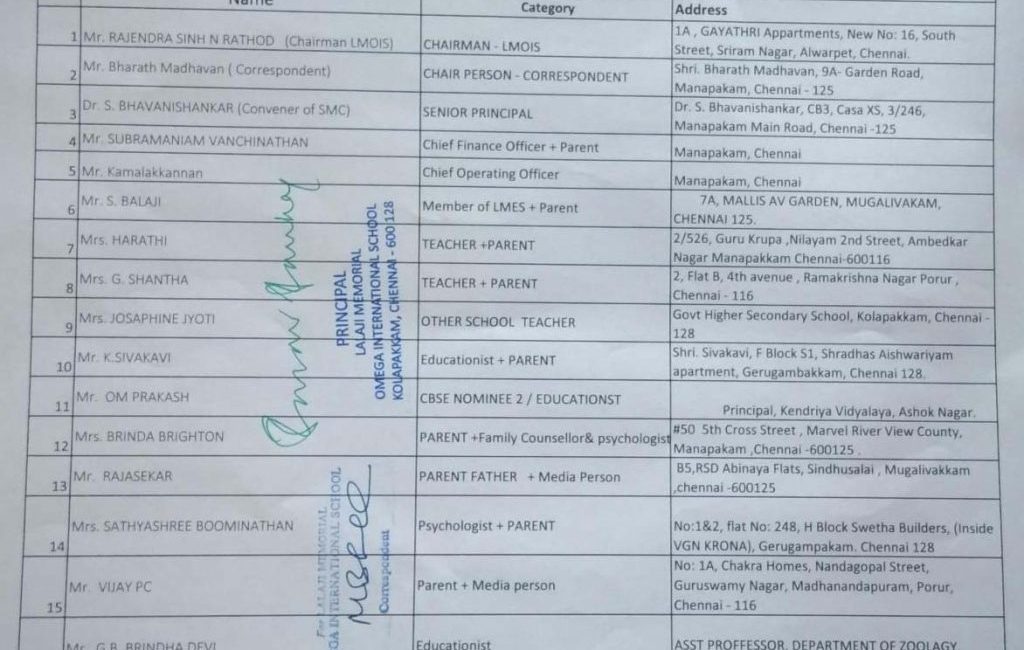 Name Category Address
1 Mr. RAJENDRA SINH N RATHOD (Chairman LMOIS) CHAIRMAN - LMOIS 1A , GAYATHRI Appartments, New No: 16, South
Street, Sriram Nagar, Alwarpet, Chennai.
2 Mr. Bharath Madhavan ( Correspondent) CHAIR PERSON - CORRESPONDENT Shri. Bharath Madhavan, 9A- Garden Road,
Manapakam, Chennai - 125
3 Dr. S. BHAVANISHANKAR (Convener of SMC) SENIOR PRINCIPAL Dr. S. Bhavanishankar, CB3, Casa XS, 3/246,
Manapakam Main Road, Chennai -125
4 Mr. SUBRAMANIAM VANCHINATHAN Chief Finance Officer + Parent Manapakam, Chennai
5 Mr. Kamalakkannan Chief Operating Officer Manapakam, Chennai
6 Mr. S. BALAJI Member of LMES + Parent 7A, MALLIS AV GARDEN, MUGALIVAKAM,
CHENNAI 125.
7 Mrs. HARATHI TEACHER +PARENT 2/526, Guru Krupa ,Nilayam 2nd Street, Ambedkar
Nagar Manapakkam Chennai-600116
8 Mrs. G. SHANTHA TEACHER + PARENT 2, Flat B, 4th avenue , Ramakrishna Nagar Porur ,
Chennai - 116
9 Mrs. JOSAPHINE JYOTI OTHER SCHOOL TEACHER Govt Higher Secondary School, Kolapakkam, Chennai -
128
10 Mr. K.SIVAKAVI Educationist + PARENT Shri. Sivakavi, F Block S1, Shradhas Aishwariyam
apartment, Gerugambakkam, Chennai 128.
11 Mr. OM PRAKASH CBSE NOMINEE 2 / EDUCATIONST Principal, Kendriya Vidyalaya, Ashok Nagar.
12 Mrs. BRINDA BRIGHTON PARENT +Family Counsellor& psychologist #50 5th Cross Street , Marvel River View County,
Manapakam ,Chennai -600125 .
13 Mr. RAJASEKAR PARENT FATHER + Media Person B5,RSD Abinaya Flats, Sindhusalai , Mugalivakkam
,chennai -600125
14 Mrs. SATHYASHREE BOOMINATHAN Psychologist + PARENT No:1&2, flat No: 248, H Block Swetha Builders, (Inside
VGN KRONA), Gerugampakam. Chennai 128
15 Mr. VIJAY PC Parent + Media person No: 1A, Chakra Homes, Nandagopal Street,
Guruswamy Nagar, Madhanandapuram, Porur,
Chennai - 116
Mr. G.B. BRINDHA DEVI Educationist ASST PROFFESSOR, DEPARTMENT OF ZOOLAGY
PRINCIPAL
LALAJI MEMORIAL
OMEGA INTERNATIONAL SCHOOL
KOLAPAKKAM, CHENNAI - 600 128
For LALAJI MEMORIAL
GA INTERNATIONAL SCHOOL
Correspondent